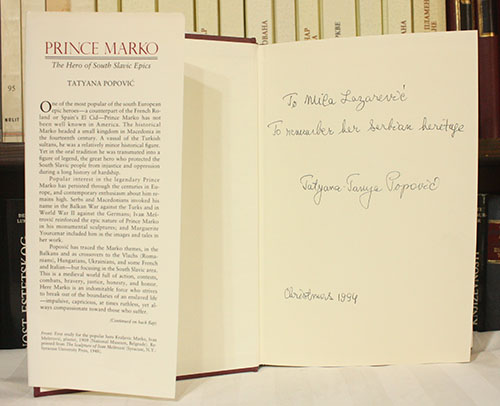 PRINCE MARKO
The Hero of South Slavic Epics
TATYANA POPOVIĆ
One of the most popular of the south European
epic heroes—a counterpart of the French Ro-
land or Spain's El Cid—Prince Marko has not
been well known in America. The historical
Marko headed a small kingdom in Macedonia in
the fourteenth century. A vassal of the Turkish
sultans, he was a relatively minor historical figure.
Yet in the oral tradition he was transmuted into a
figure of legend, the great hero who protected the
South Slavic people from injustice and oppression
during a long history of hardship.
Popular interest in the legendary Prince
Marko has persisted through the centuries in Eu-
rope, and contemporary enthusiasm about him re-
mains high. Serbs and Macedonians invoked his
name in the Balkan War against the Turks and in
World War II against the Germans; Ivan Meš-
trović reinforced the epic nature of Prince Marko
in his monumental sculptures; and Marguerite
Yourcenar included him in the images and tales in
her work.
Popović has traced the Marko themes, in the
Balkans and as crosscurrents to the Vlachs (Roma-
nians), Hungarians, Ukrainians, and some French
and Italian—but focusing in the South Slavic area.
This is a medieval world full of action, contests,
combats, bravery, justice, honesty, and honor.
Here Marko is an indomitable force who strives
to break out of the boundaries of an enslaved life
—impulsive, capricious, at times ruthless, yet al-
ways compassionate toward those who suffer.
(Continued on back flap)
To Mila Lazarević
To remember her Serbian heritage
Tatyana-Tanya Popović
Christmas 1994
95
NOLIT